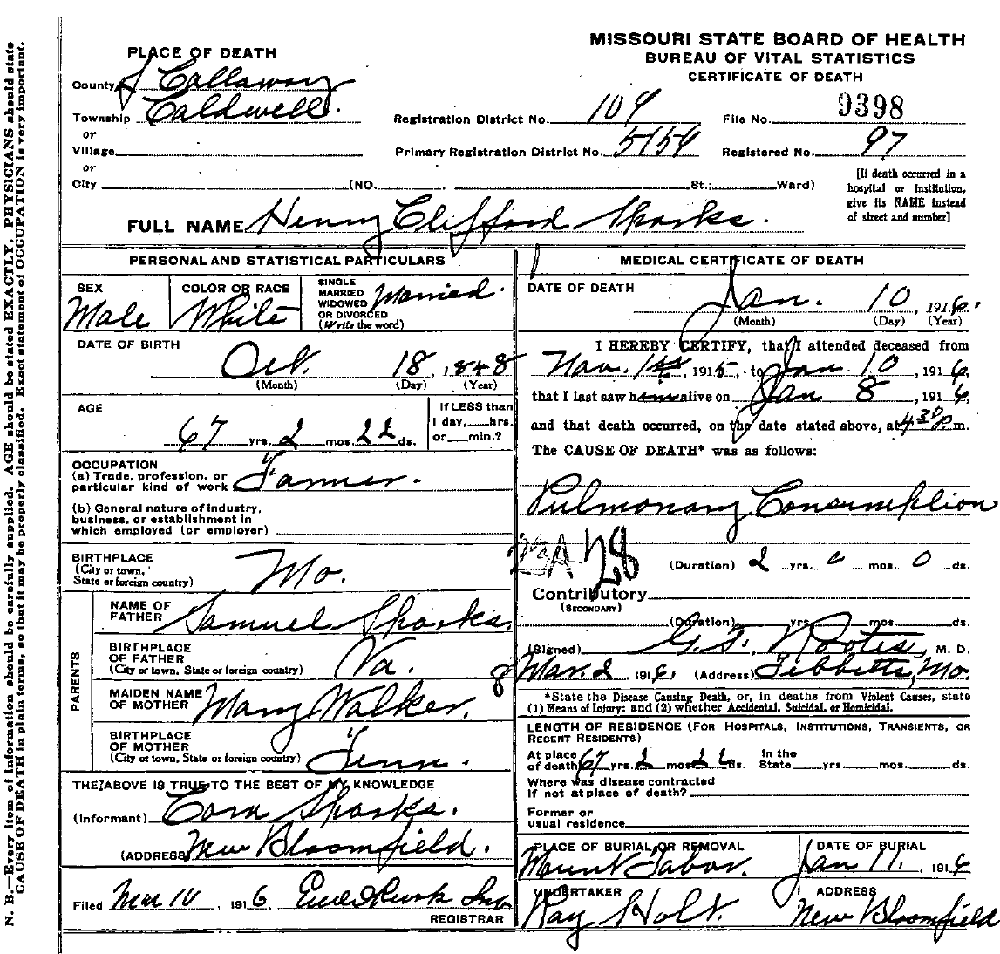 MISSOURI STATE BOARD OF HEALTH
BUREAU OF VITAL STATISTICS
CERTIFICATE OF DEATH
PLACE OF DEATH
County Callaway
Township Caldwell.
or
Village
or
City (NO. St.; Ward)
Registration District No. 104 File No. 9398
Primary Registration District No. 5154 Registered No. 97
[If death occurred in a
hospital or Institution,
give its NAME instead
of street and number]
FULL NAME Henry Clifford Sparks.
PERSONAL AND STATISTICAL PARTICULARS
SEX Male
COLOR OR RACE White
SINGLE
MARRIED
WIDOWED
OR DIVORCED
(Write the word) Married.
DATE OF BIRTH
Oct. 18, 1848
(Month) (Day) (Year)
AGE
67 yrs. 2 mos. 22 ds.
If LESS than
1 day, hrs.
or min.?
OCCUPATION
(a) Trade, profession, or
particular kind of work Farmer.
(b) General nature of industry,
business, or establishment in
which employed (or employer)
BIRTHPLACE
(City or town,
State or foreign country) Mo.
PARENTS
NAME OF
FATHER Samuel Sparks
BIRTHPLACE
OF FATHER
(City or town, State or foreign country) Va.
MAIDEN NAME
OF MOTHER Mary Walker.
BIRTHPLACE
OF MOTHER
(City or town, State or foreign country) Tenn.
THE ABOVE IS TRUE TO THE BEST OF MY KNOWLEDGE
(Informant) Cora Sparks.
(ADDRESS) New Bloomfield.
Filed Mar 10, 1916
REGISTRAR
MEDICAL CERTIFICATE OF DEATH
DATE OF DEATH
Jan. 10, 1916.
(Month) (Day) (Year)
I HEREBY CERTIFY, that I attended deceased from
Nov. 1st, 1915, to Jan 10, 1916,
that I last saw him alive on Jan 8, 1916
and that death occurred, on the date stated above, at 4 30 P. m.
The CAUSE OF DEATH* was as follows:
Pulmonary Consumption
28
(Duration) 2 yrs. 0 mos. 0 ds.
Contributory
(SECONDARY)
(Duration) yrs. mos. ds.
(Signed) G. F. Rootes, M. D.
Mar. 2 1916. (Address) Tebbetts, Mo.
8
*State the Disease Causing Death, or, in deaths from Violent Causes, state
(1) Means of Injury; and (2) whether Accidental, Suicidal, or Homicidal.
LENGTH OF RESIDENCE (FOR HOSPITALS, INSTITUTIONS, TRANSIENTS, OR
RECENT RESIDENTS)
At place
of death 67 yrs. 2 mos. 22 ds. In the
State yrs. mos. ds.
Where was disease contracted
If not at place of death?
Former or
usual residence
PLACE OF BURIAL OR REMOVAL
Mount Tabor.
DATE OF BURIAL
Jan 11, 1916
UNDERTAKER
Ray Holt.
ADDRESS
New Bloomfield
N. B.—Every item of information should be carefully supplied. AGE should be stated EXACTLY. PHYSICIANS should state
CAUSE OF DEATH in plain terms, so that it may be properly classified. Exact statement of OCCUPATION is very important.